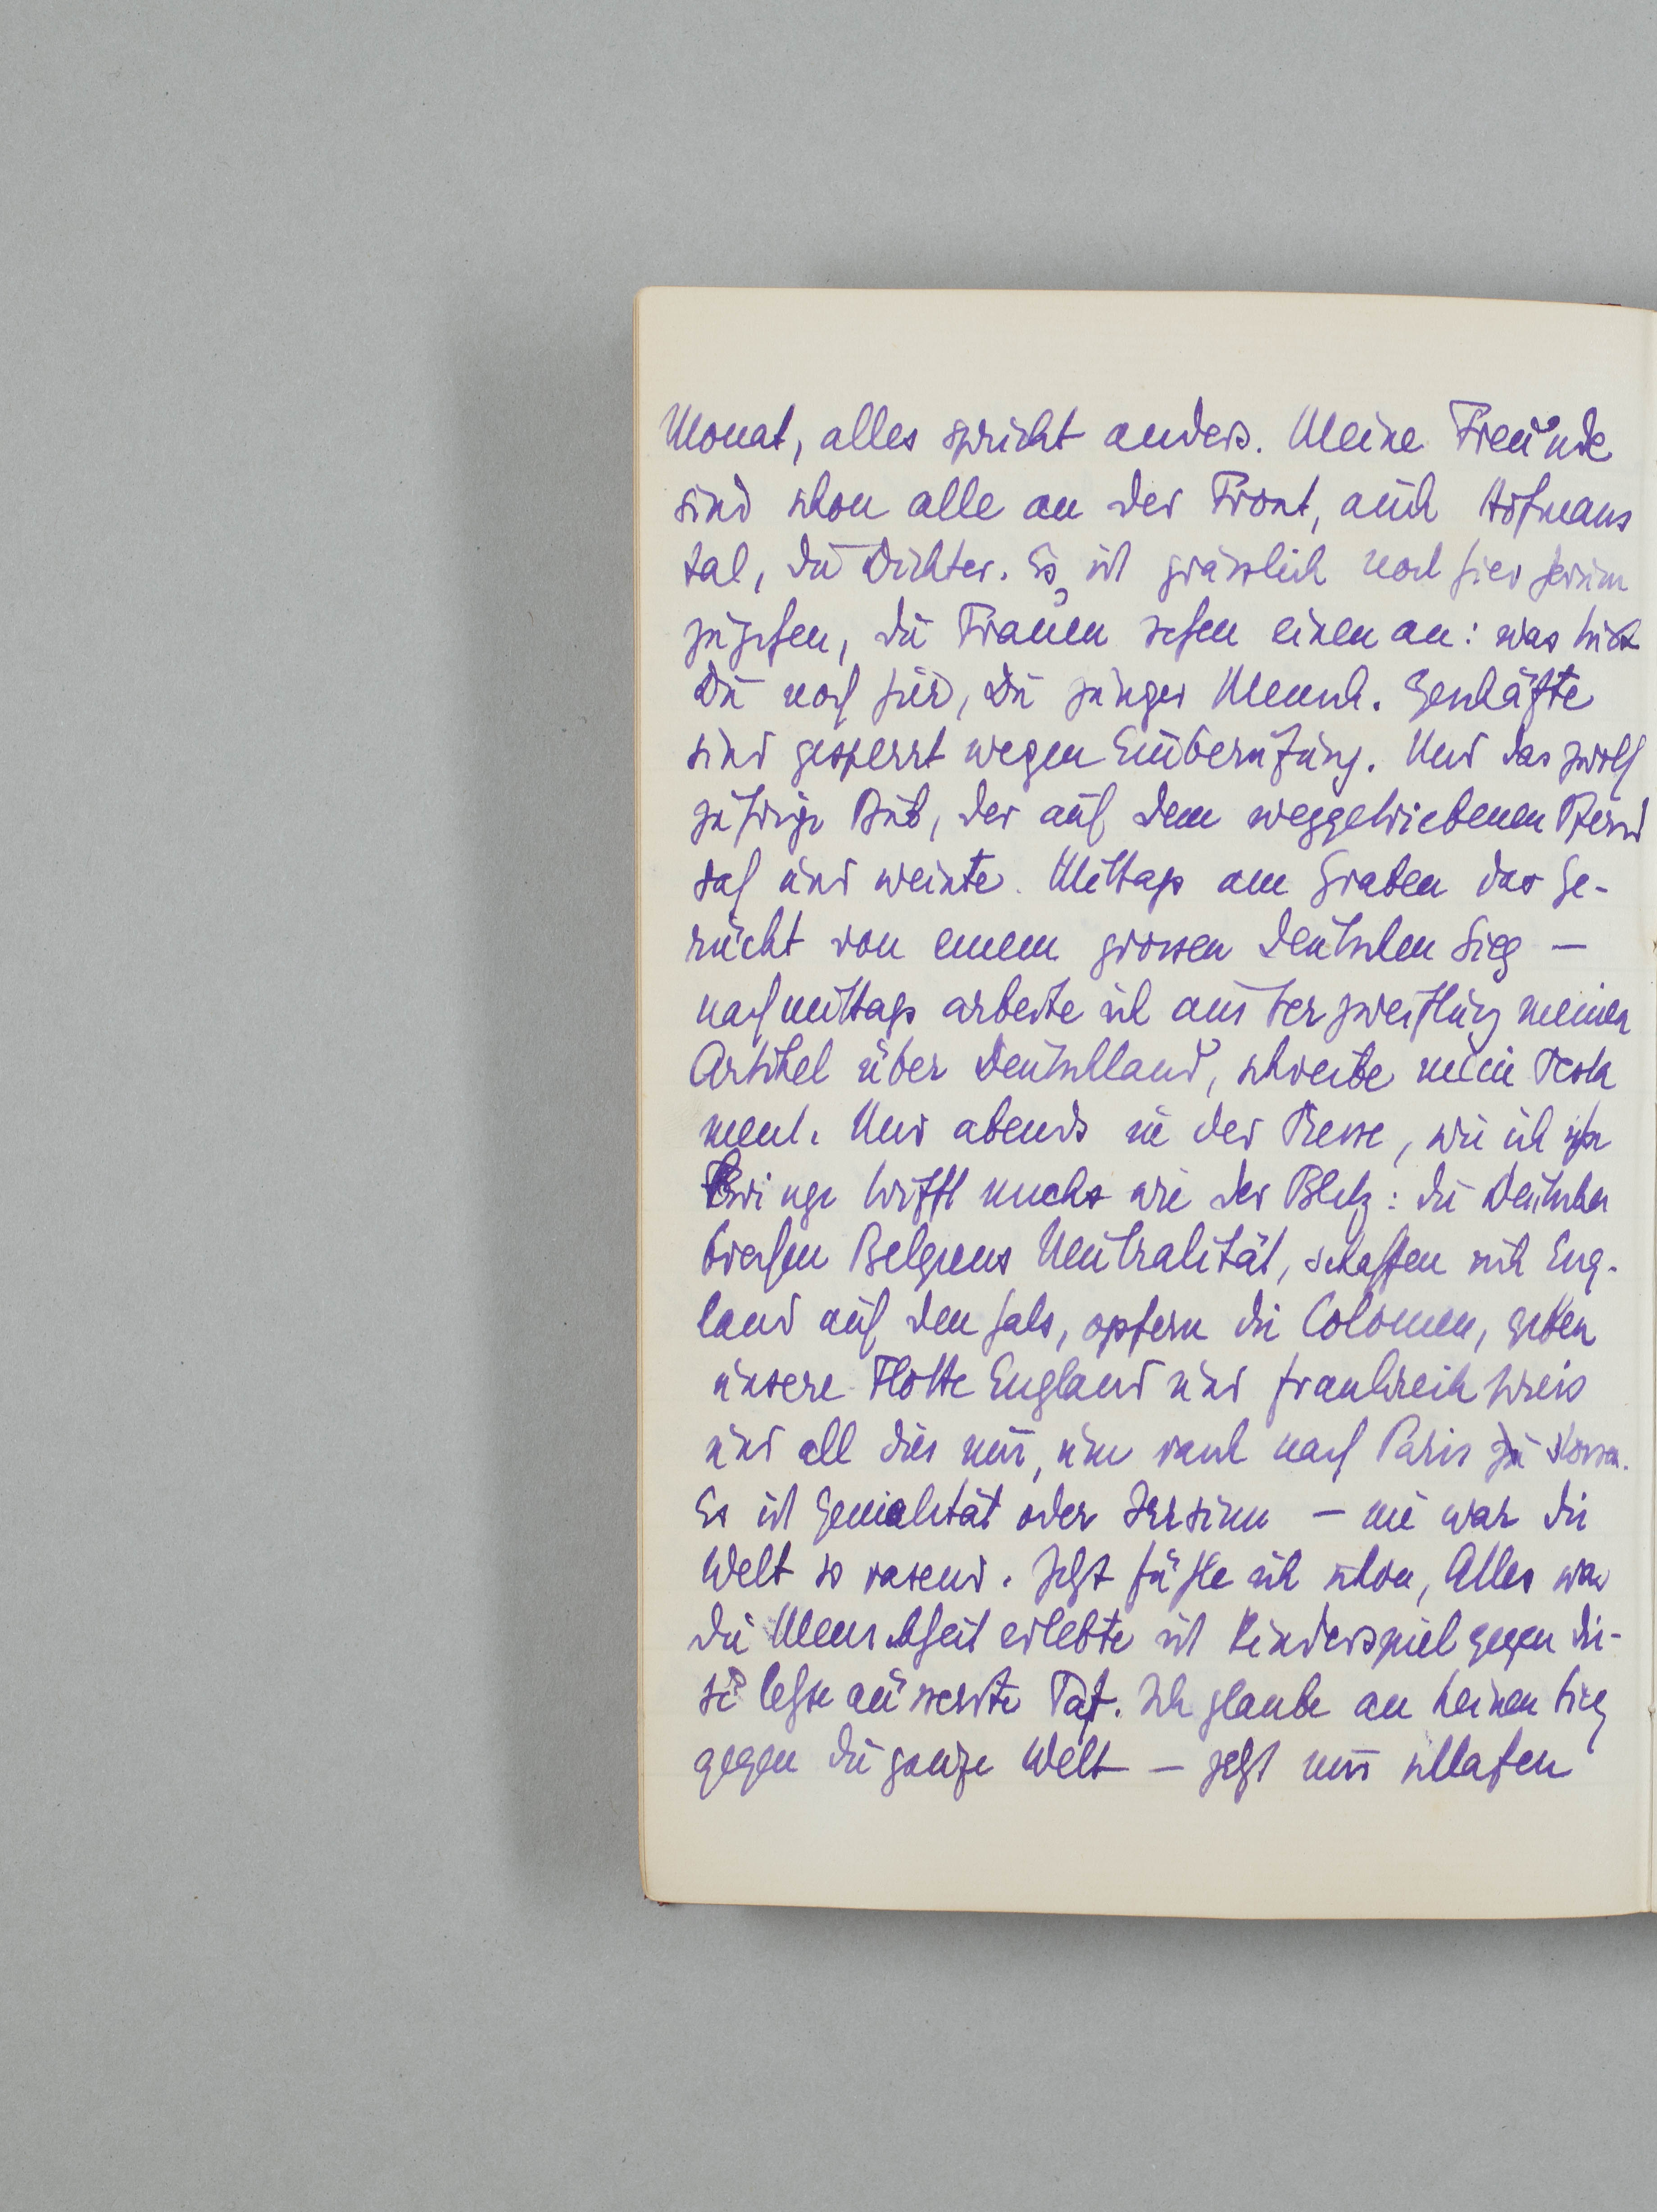 Monat, alles spricht anders. Meine Freunde
sind schon alle an der Front, auch Hofmans
tal, der Dichter. Es ist grässlich noch hier herum
zugehen, die Frauen sehen einen an: was tust
Du noch hier, Du junger Mensch. Geschäfte
sind gesperrt wegen Einberufung. Und das zwölf
jährige Bub, der auf dem weggetriebenen Pferd
sah und weinte. Mittags am Graben das Ge-
rücht von einem grossen deutschen Sieg –
nachmittags arbeite ich aus Verzweiflung meinen
Artikel über Deutschland, schreibe mein Testa
ment. Und abends in der Presse, wie ich ihn
bringe trifft michs wie der Blitz: die Deutschen
brechen Belgiens Neutralität, schaffen sich Eng-
land auf den Hals, opfern die Colonien, geben
unsere Flotte England und Frankreich preis
und all dies nur, um rasch nach Paris zu
Es ist Genialität oder Irrsinn – nie war die
Welt so rasend. Jetzt fühle ich schon, Alles was
die Menschheit erlebte ist Kinderspiel gegen die-
se letzte äusserste Tat. Ich glaube an keinen Sieg
gegen die ganze Welt – jetzt nur schlafen